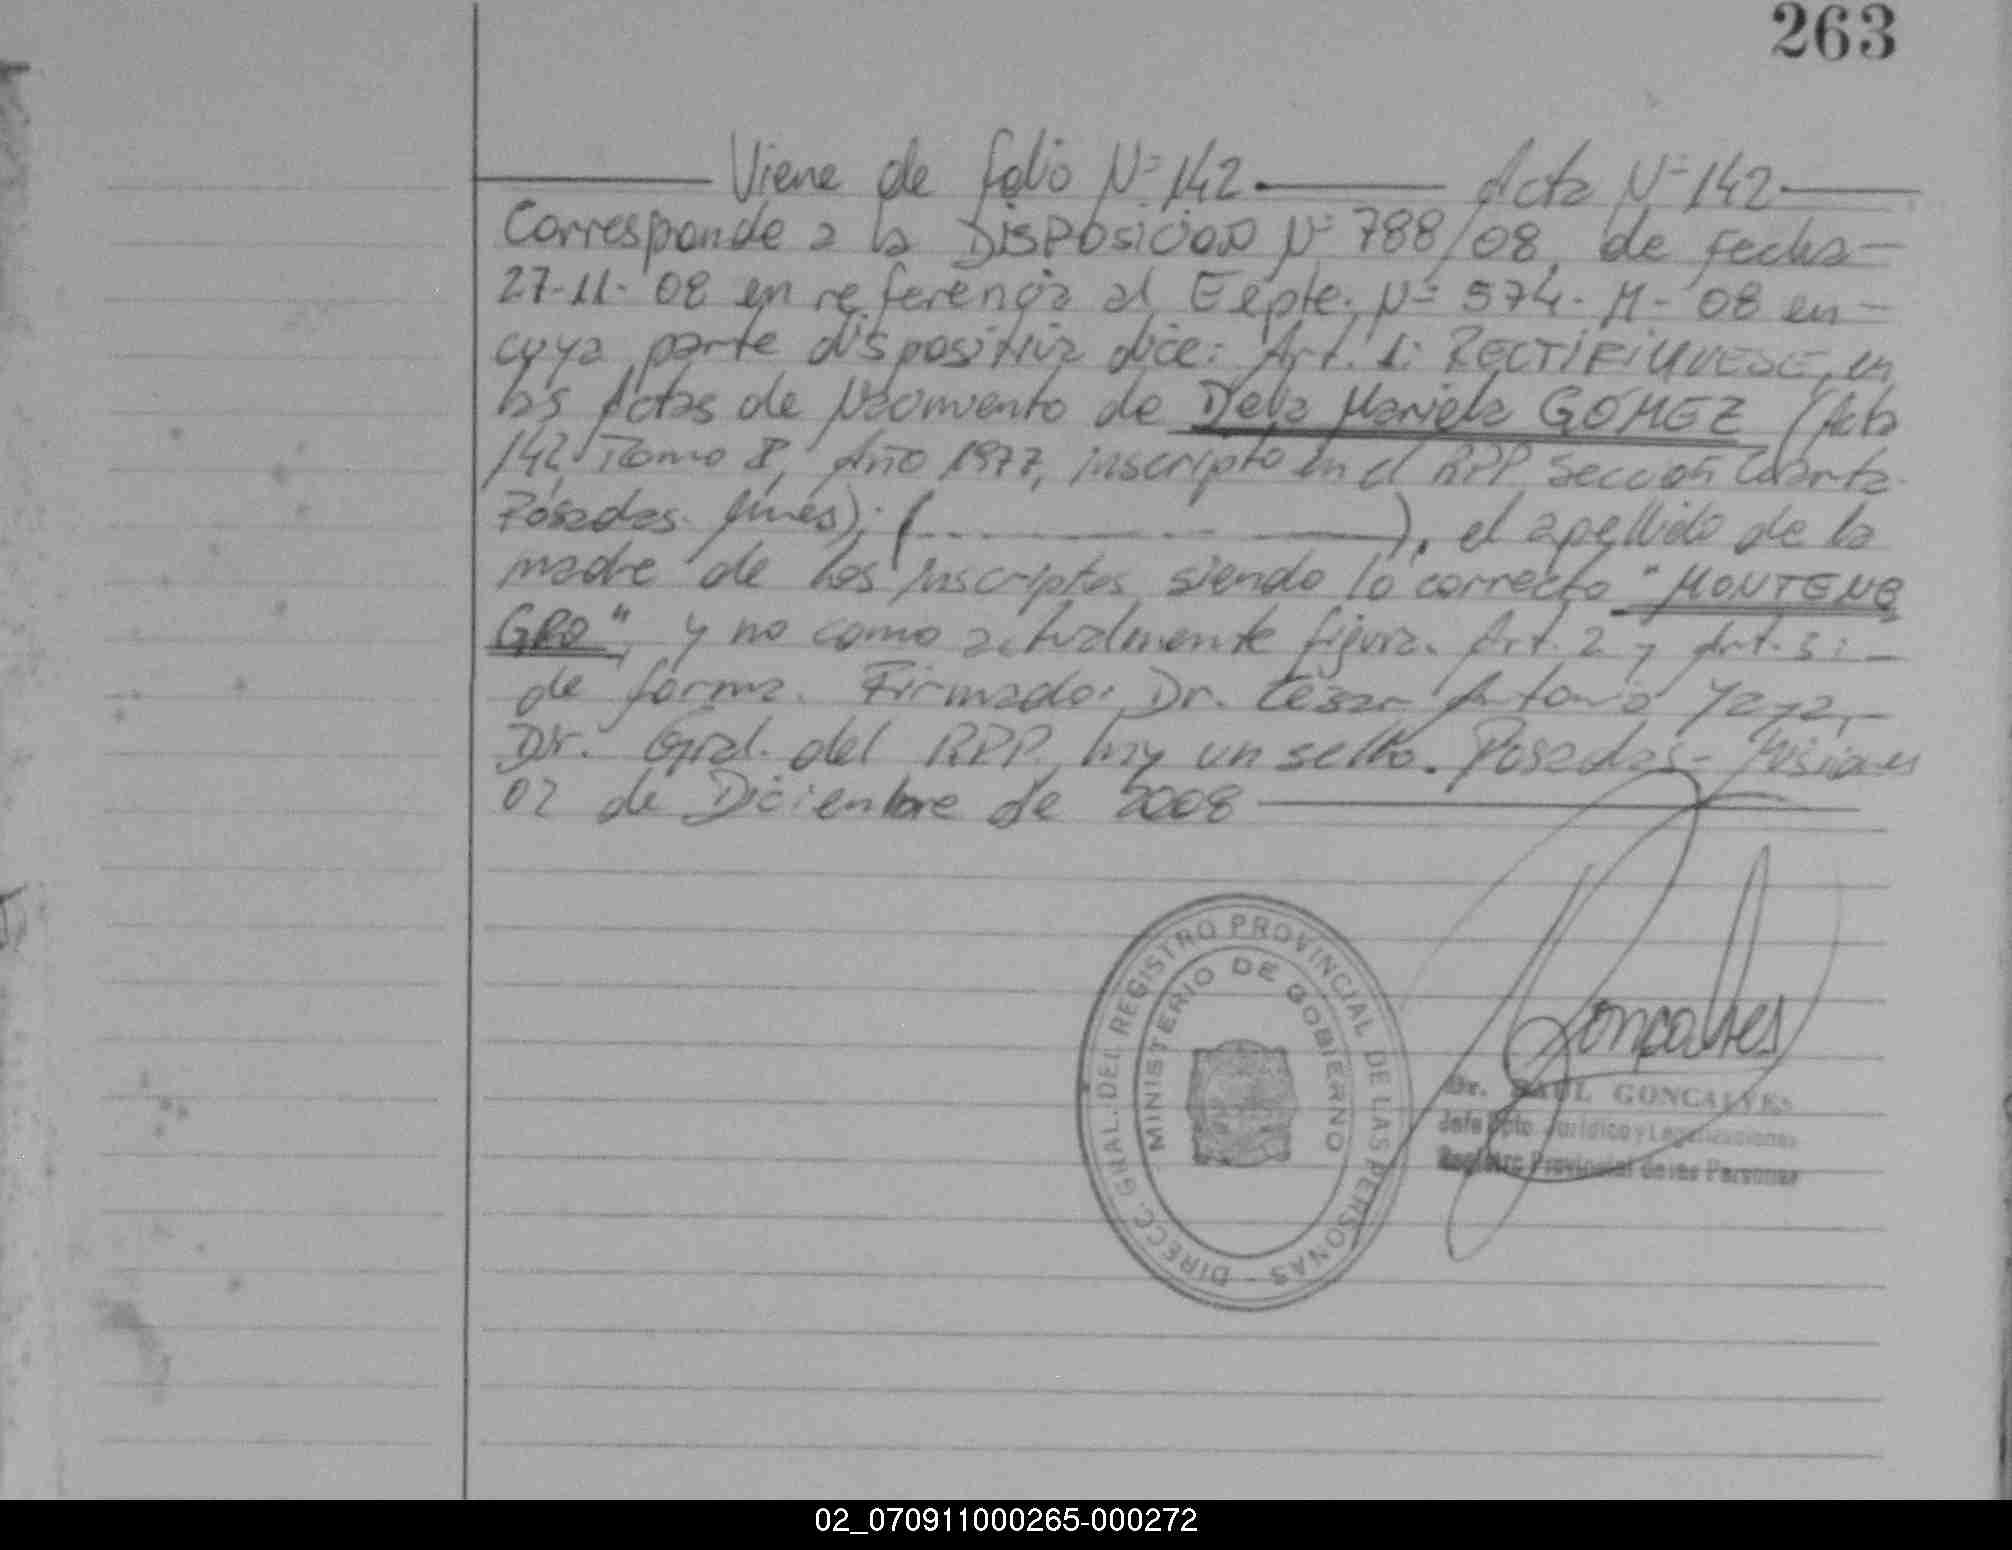 263
Viene de folio Nº 142 Acta Nº 142
Corresponde a la DISPOSICION Nº 788/08, de fecha
27-11-08 en referencia al Expte. Nº 574-M-08 en
cuya parte dispositiva dice: Art. 1: RECTIFIQUESE, en
las Actas de Nacimiento de Mariela GOMEZ (Acta
142, Tomo 8, Año 1977, inscripto en el RPP. Sección Cuarta
Posadas. Mnes); ( ), el apellido de la
madre de los inscriptos siendo lo correcto "MONTENE
GRO", y no como actualmente figura. Art. 2 y Art. 3:
de forma. Firmado: Dr. César Antonio Yaya,
Dir. Gral. del RPP. hay un sello. Posadas - Misiones
02 de Diciembre de 2008
DIRECC. GNAL. DEL REGISTRO PROVINCIAL DE LAS PERSONAS
MINISTERIO DE GOBIERNO
Goncalves
Dr. RAUL GONCALVES
Jefe Dpto. Jurídico y Legalizaciones
Registro Provincial de las Personas
02_070911000265-000272